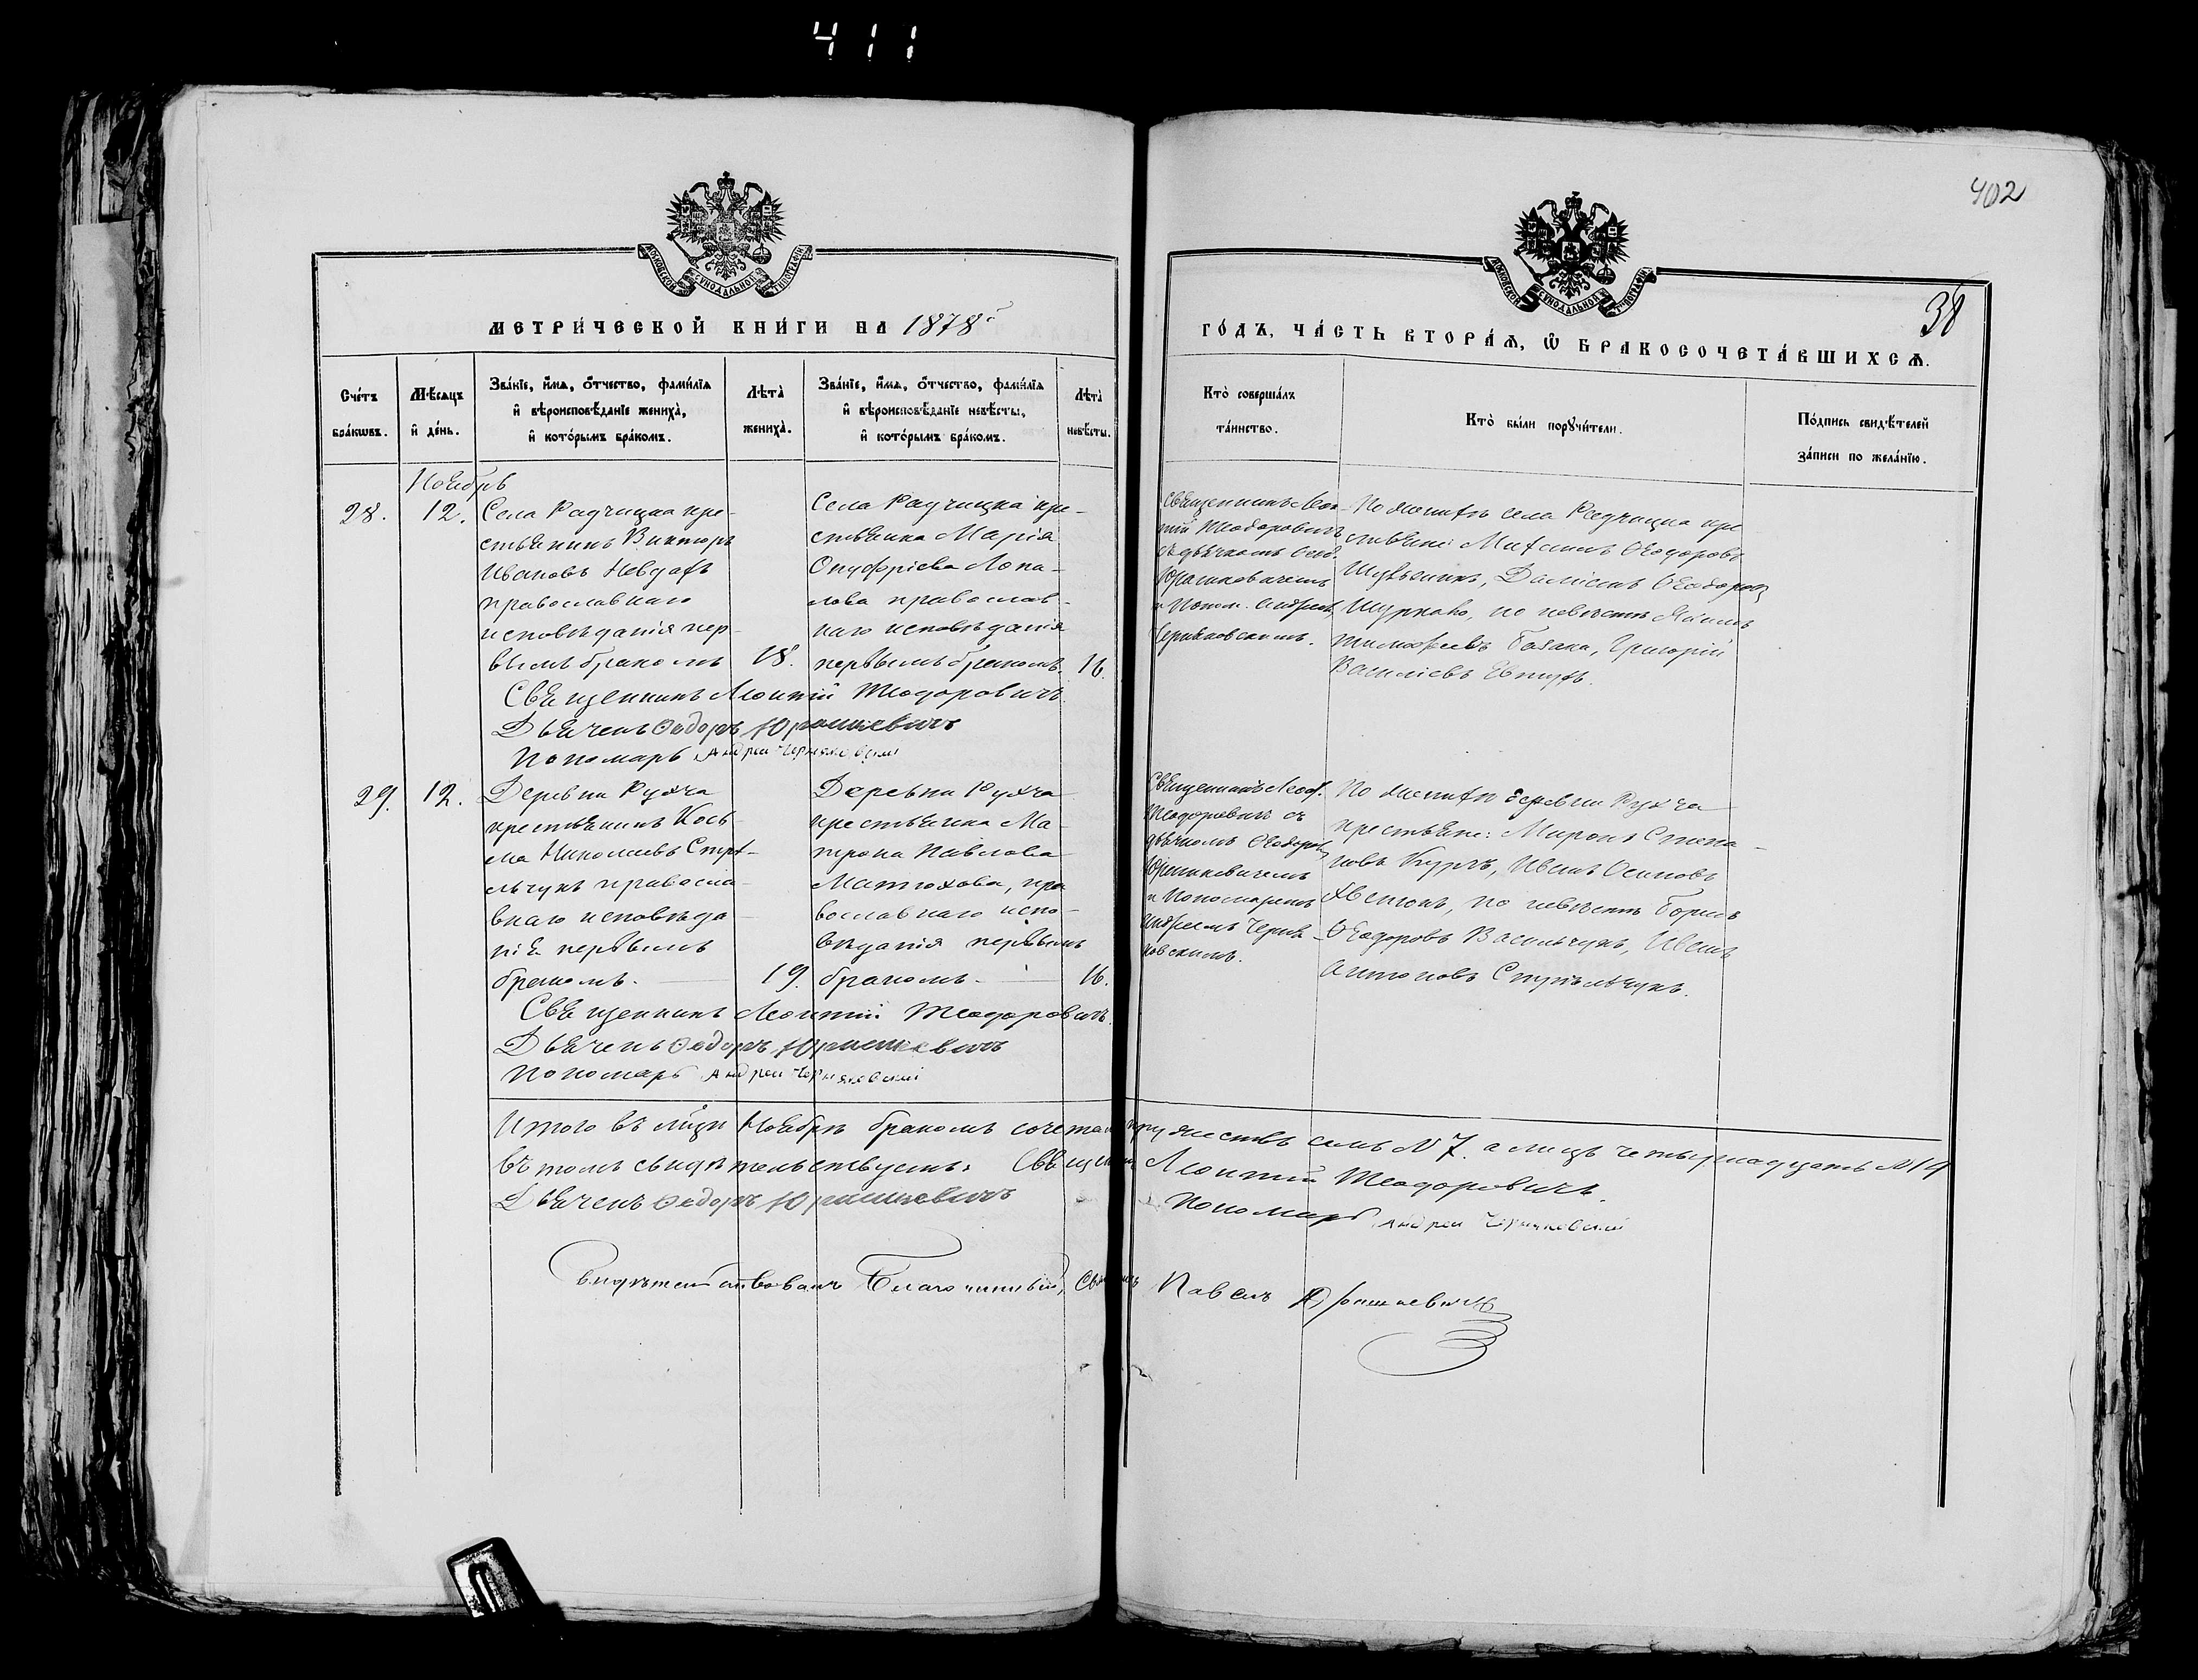 411
402
МОСКОВСКОЙ СѴНОДАЛЬНОЙ ТИПОГРАФІИ
МОСКОВСКОЙ СѴНОДАЛЬНОЙ ТИПОГРАФІИ
38
МЕТРИ́ЧЕСКОЙ КНИ́ГИ НА 1878
ГО́ДЪ, ЧА́СТЬ ВТОРА́Ѧ, Ѿ БРАКОСОЧЕТА́ВШИХСѦ.
Сче́тъ бра́кѡвъ.
Мѣ́сѧцъ и҆ де́нь.
Зва́нїе, и҆́мѧ, ѻ҆́тчество, фами́лїѧ
и҆ вѣроисповѣ́данїе жениха̀,
и҆ кото́рымъ бра́комъ.
Лѣ́та жениха̀.
Зва́нїе, и҆́мѧ, ѻ҆́тчество, фами́лїѧ
и҆ вѣроисповѣ́данїе невѣ́сты,
и҆ кото́рымъ бра́комъ.
Лѣ́та невѣ́сты.
Кто̀ соверша́лъ
та́инство.
Кто̀ бы́ли порꙋчи́тели.
По́дпись свидѣ́телей
за́писи по жела́нїю.
Ноябрь
28.
12.
Села Радчицка кре-
стьянинъ Викторъ
Ивановъ Невдахъ
православнаго
исповѣданія пер-
вымъ бракомъ
18.
Села Радчицка кре-
стьянка Марія
Онуфріева Лопа-
това православ-
наго исповѣданія
первымъ бракомъ.
16.
Священникъ Леон-
тій Теодоровичъ
съ дьячкомъ Ѳеод.
Юрашкевичемъ
и Поном. Андреемъ
Черняковскимъ.
По женихѣ села Радчицка кре
стьяне: Ѳеодоровъ
Ѳеодоровъ
по невѣстѣ
Тимофеевъ Григорій
Василіевъ Евтухъ.
Священникъ Леонтій Теодоровичъ.
Дьячекъ Ѳедоръ Юрашкевичъ
Пономарь Андрей Черняковскій
29.
12.
Деревни Рухча
крестьянинъ Кось-
ма Николаевъ Струк-
льчукъ правосла-
внаго исповѣда-
нія первымъ
бракомъ.
19.
Деревни Рухча
крестьянка Ма-
трона Павлова
Матюхова, пра
вославнаго испо-
вѣданія первымъ
бракомъ.
16.
Священникъ Леонт.
Теодоровичъ съ
дьячкомъ Ѳеодоромъ
Юрашкевичемъ
и Пономаремъ
Андреемъ Черня-
ковскимъ.
По женихѣ деревни Рухча
крестьяне: Миронъ Степа-
новъ Иванъ Осиповъ
по невѣстѣ Борисъ
Ѳеодоровъ Васильчукъ, Иванъ
Антоновъ
Священникъ Леонтій Теодоровичъ.
Дьячекъ Ѳедоръ Юрашкевичъ
Пономарь Андрей Черняковскій
Итого въ м-цѣ Ноябрѣ бракомъ сочеталось супружествъ семь N 7. а лицъ четырнадцать N 14
въ томъ свидѣтельствуемъ: Священникъ Леонтій Теодоровичъ.
Дьячекъ Ѳедоръ Юрашкевичъ
Пономарь Андрей Черняковскій
Свидѣтельствовалъ Благочинный, Священникъ Павелъ Юрашкевичъ